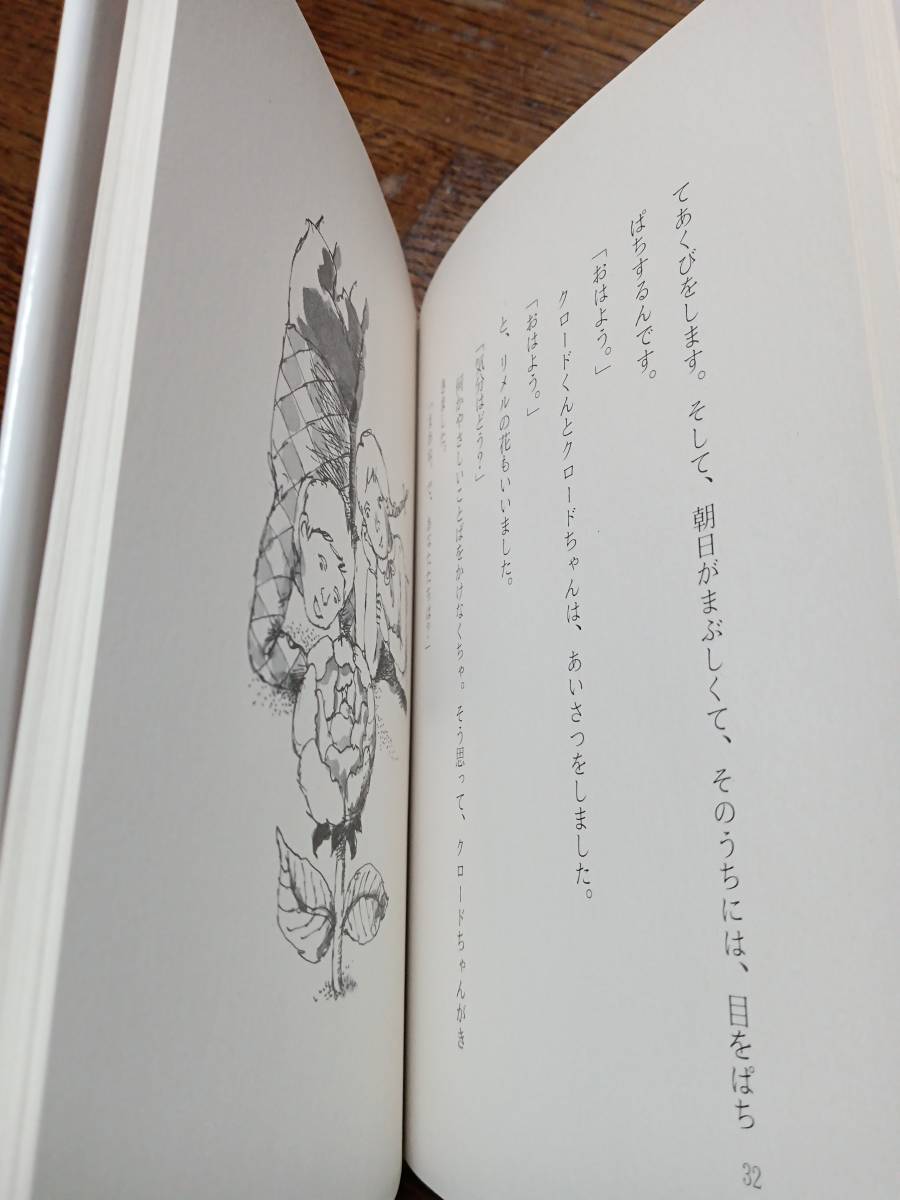 てあくびをします。そして、朝日がまぶしくて、そのうちには、目をぱち
ぱちするんです。
「おはよう。」
クロードくんとクロードちゃんは、あいさつをしました。
「おはよう。」
と、リメルの花もいいました。
「気分はどう？」
何かやさしいことばをかけなくちゃ。そう思って、クロードちゃんがき
きました。
あなたたちは？」
32